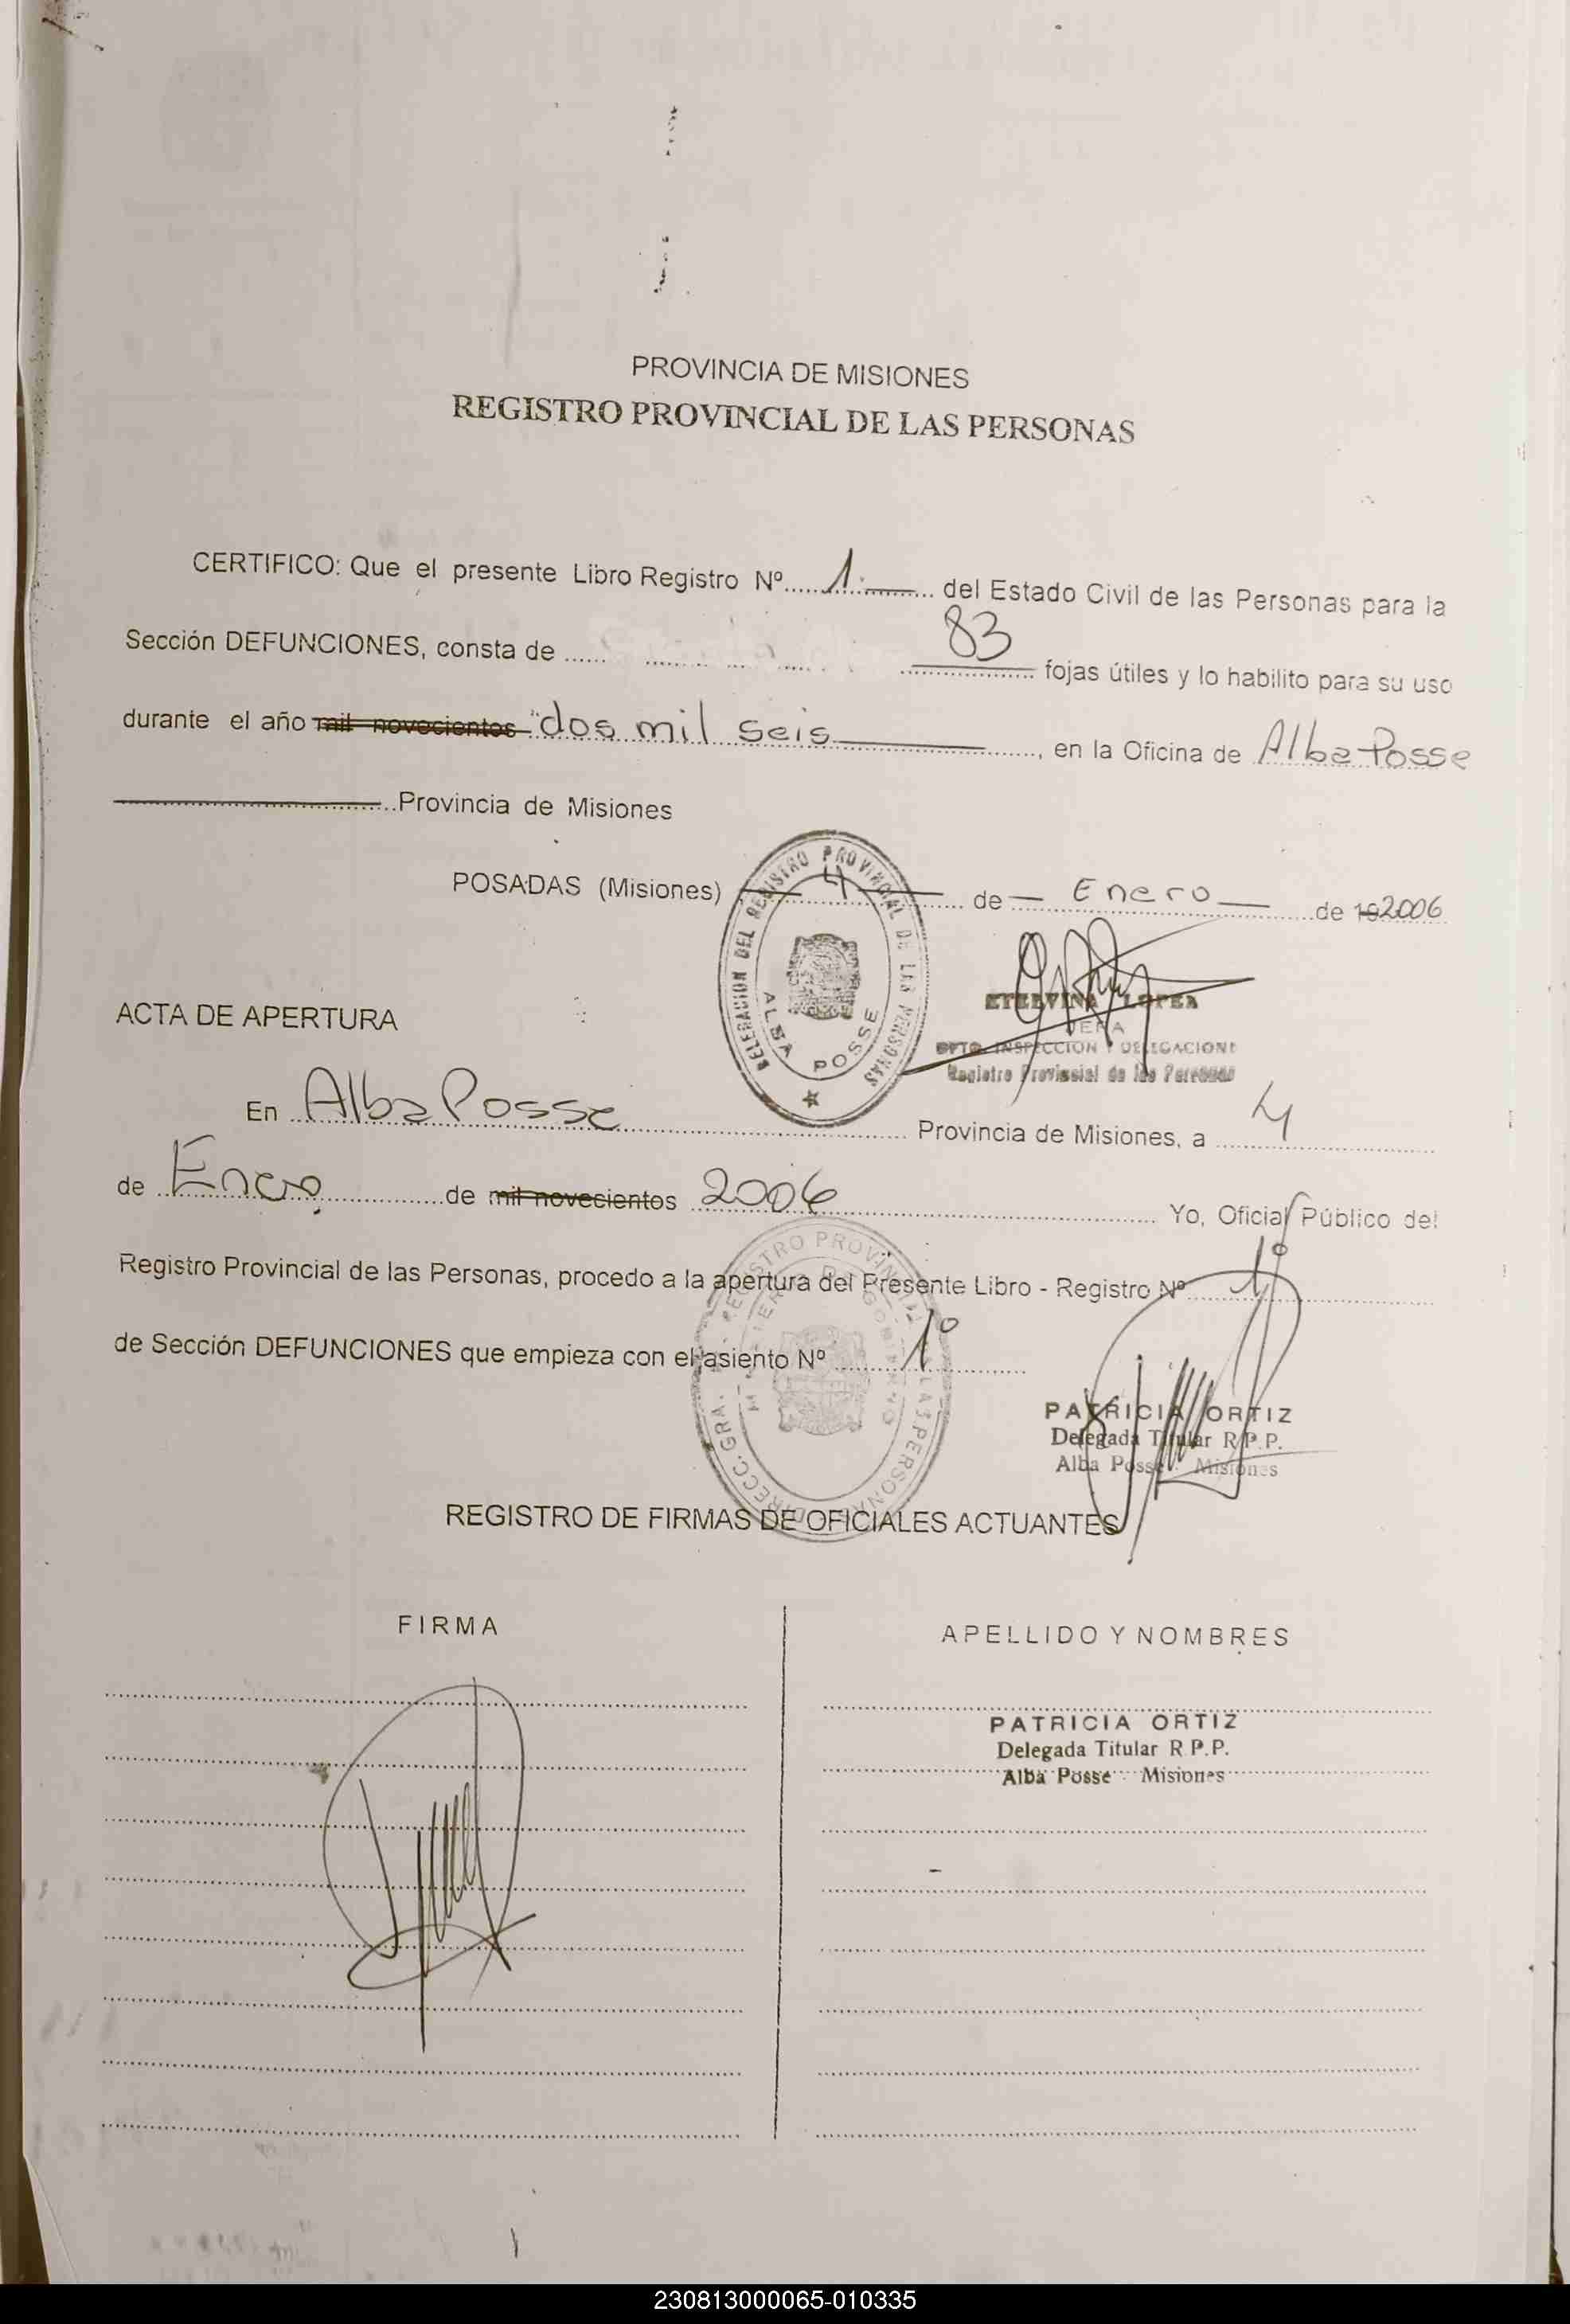 PROVINCIA DE MISIONES
REGISTRO PROVINCIAL DE LAS PERSONAS
CERTIFICO: Que el presente Libro Registro Nº 1 del Estado Civil de las Personas para la
Sección DEFUNCIONES, consta de 83 fojas útiles y lo habilito para su uso
durante el año mil novecientos dos mil seis, en la Oficina de Alba Posse
Provincia de Misiones
POSADAS (Misiones) 4 de Enero de 19 2006
DELEGACION DEL REGISTRO PROVINCIAL DE LAS PERSONAS
ALBA POSSE
ETELVINA LOPEZ
DPTO. INSPECCION Y DELEGACIONE
Registro Provincial de las Personas
ACTA DE APERTURA
En Alba Posse Provincia de Misiones, a 4
de Enero de mil novecientos 2006 Yo, Oficial Público del
Registro Provincial de las Personas, procedo a la apertura del Presente Libro - Registro Nº 1º
de Sección DEFUNCIONES que empieza con el asiento Nº 1º
PATRICIA ORTIZ
Delegada Titular R.P.P.
Alba Posse - Misiones
REGISTRO DE FIRMAS DE OFICIALES ACTUANTES
FIRMA
APELLIDO Y NOMBRES
PATRICIA ORTIZ
Delegada Titular R.P.P.
Alba Posse - Misiones
230813000065-010335